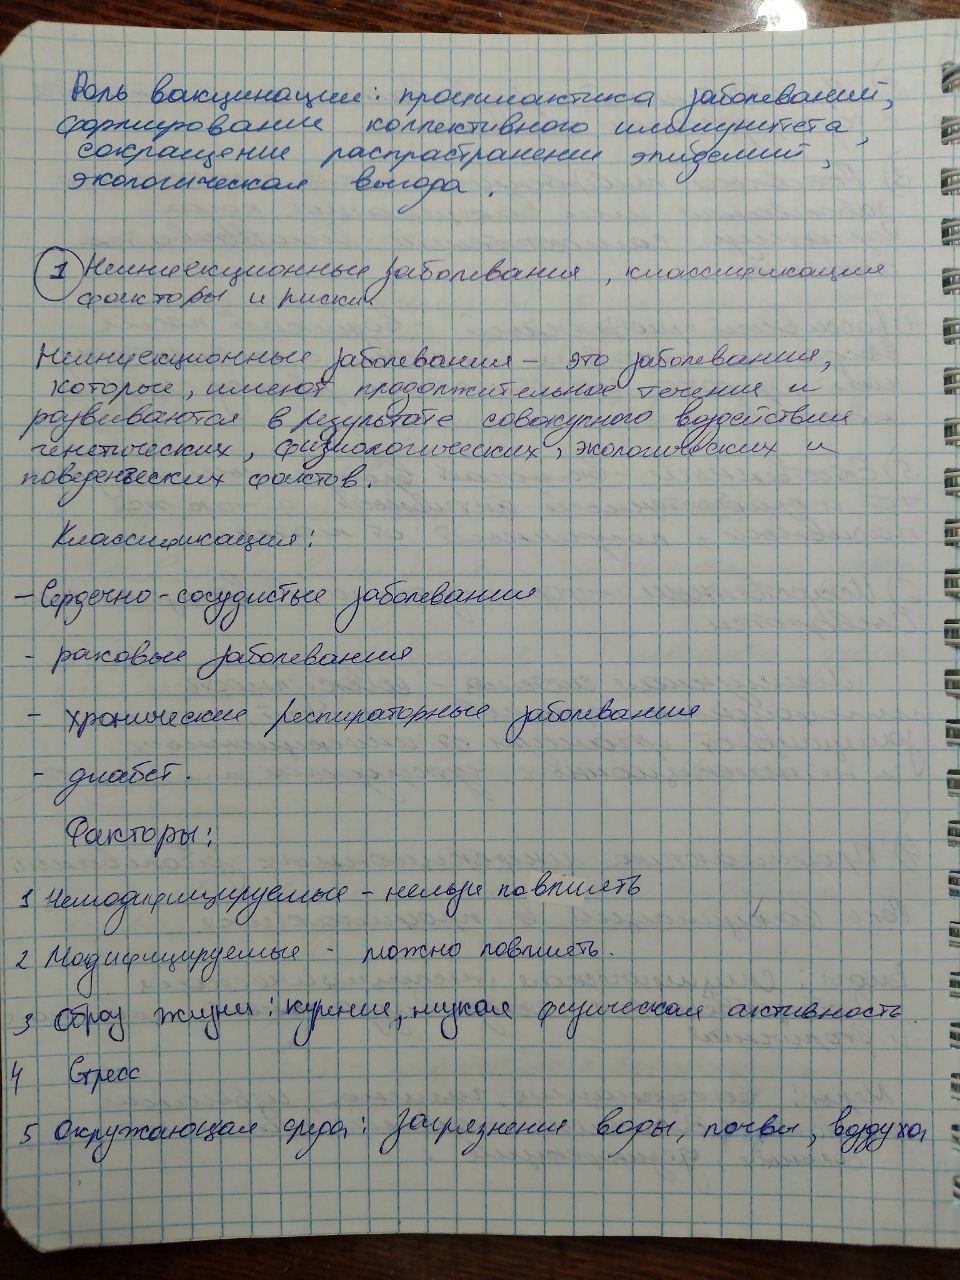 Роль вакцинации: профилактика заболеваний,
формирование коллективного иммунитета,
сокращение распрастранения эпидемий,
экологическая выгода.
1 Неинфекционные заболевания, классификация
факторы и риски.
Неинфекционные заболевания – это заболевания,
которые, имеют продолжительное течение и
развиваются в результате совокупного воздействия
генетических, физиологических, экологических и
поведенческих фактов.
Классификация:
- Сердечно-сосудистые заболевания
- раковые заболевания
- хронические респираторные заболевания
- диабет.
Факторы:
1 Немодифицируемые - нельзя повлиять
2 Модифицируемые - можно повлиять.
3 Образ жизни: курение, низкая физическая активность.
4 Стресс
5 Окружающая среда: Загрязнение воды, почвы, воздуха,